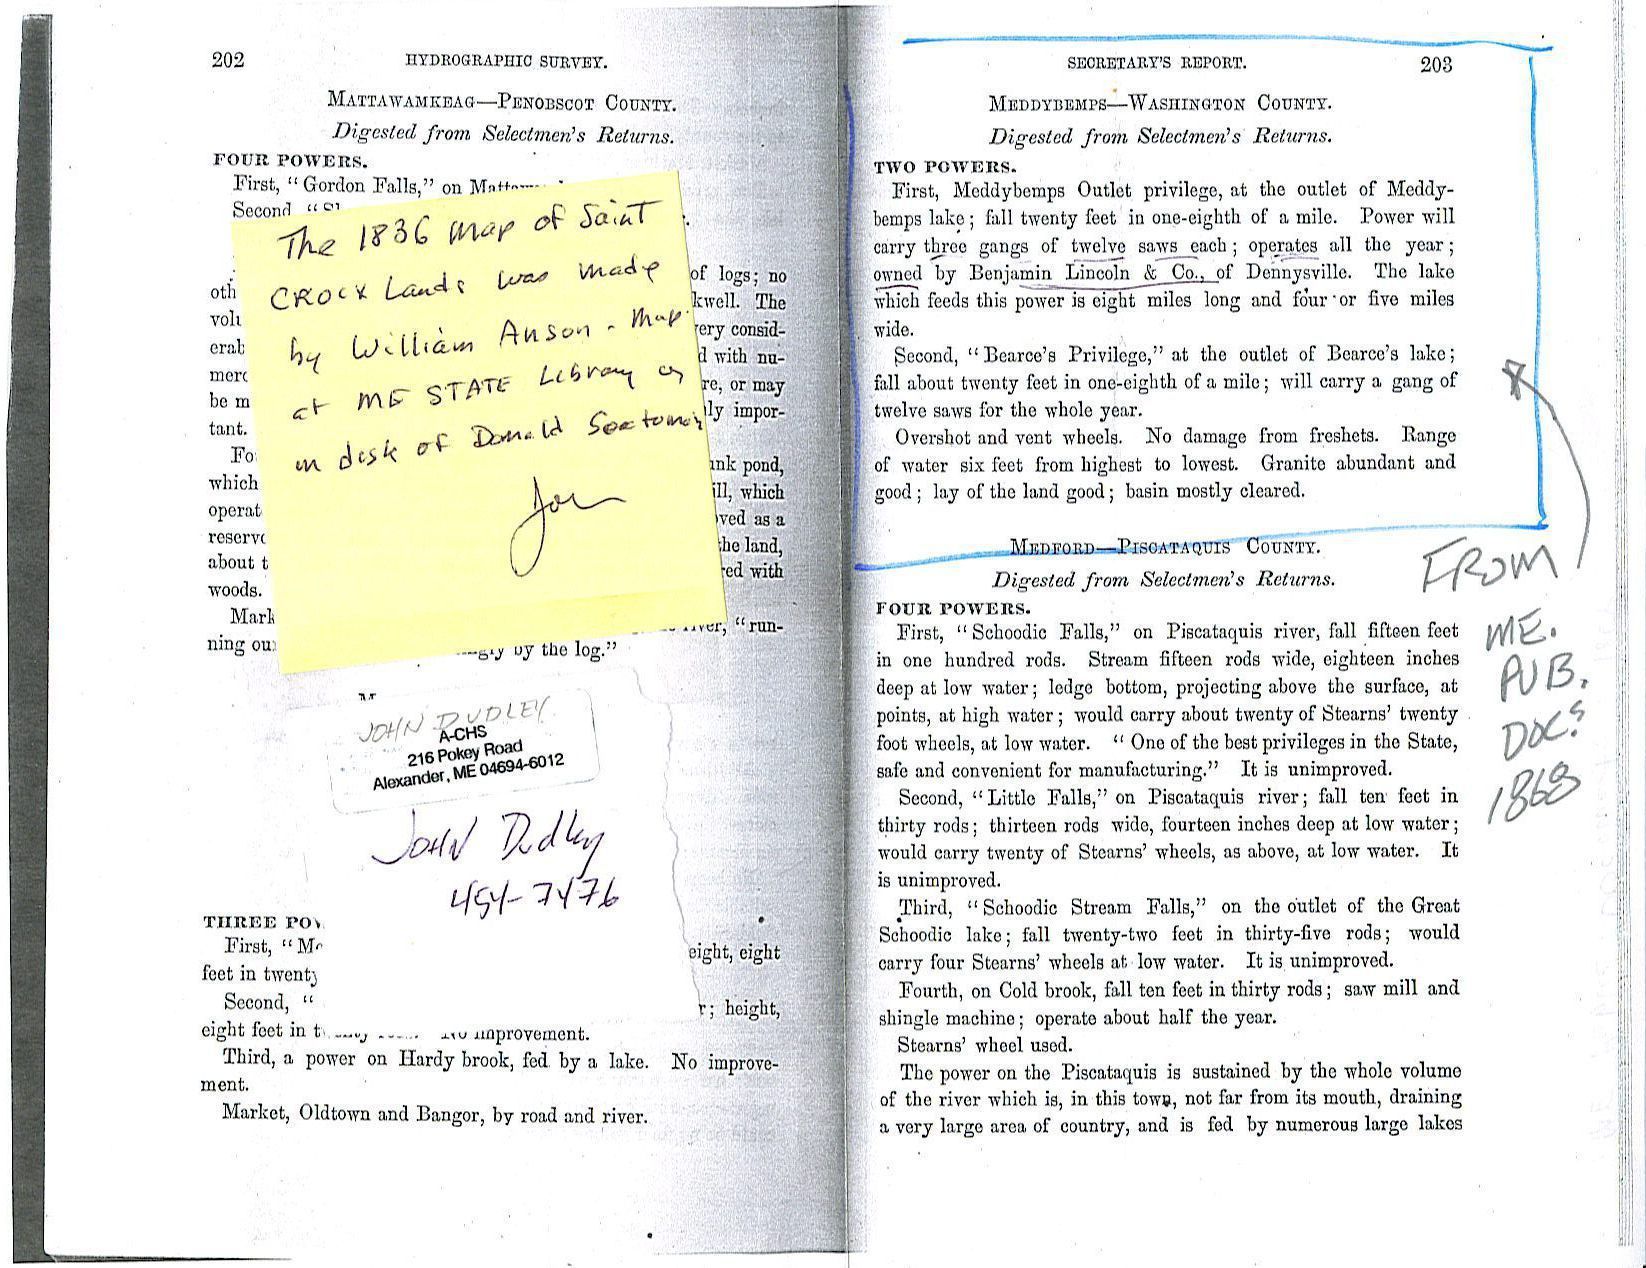 202 HYDROGRAPHIC SURVEY.
MATTAWAMKEAG—PENOBSCOT COUNTY.
Digested from Selectmen's Returns.
FOUR POWERS.
First, "Gordon Falls," on
Second
of logs; no
oth kwell. The
volu ery consid-
erab d with nu-
merc re, or may
be m ly impor-
tant.
Fo ink pond,
which ill, which
operat ved as a
reserve he land,
about t ed with
woods.
Mark river, "run-
ning ou gly by the log."
The 1836 map of Saint
CROCK Lands was made
by William Anson - Map
at ME STATE Library or
on desk of Donald Soctomah
Jon
JOHN DUDLEY
A-CHS
216 Pokey Road
Alexander, ME 04694-6012
JOHN Dudley
454-7476
THREE POW
First, "M eight, eight
feet in twenty
Second, " r; height,
eight feet in t No improvement.
Third, a power on Hardy brook, fed by a lake. No improve-
ment.
Market, Oldtown and Bangor, by road and river.
SECRETARY'S REPORT. 203
MEDDYBEMPS—WASHINGTON COUNTY.
Digested from Selectmen's Returns.
TWO POWERS.
First, Meddybemps Outlet privilege, at the outlet of Meddy-
bemps lake; fall twenty feet in one-eighth of a mile. Power will
carry three gangs of twelve saws each; operates all the year;
owned by Benjamin Lincoln & Co., of Dennysville. The lake
which feeds this power is eight miles long and four or five miles
wide.
Second, "Bearce's Privilege," at the outlet of Bearce's lake;
fall about twenty feet in one-eighth of a mile; will carry a gang of
twelve saws for the whole year.
Overshot and vent wheels. No damage from freshets. Range
of water six feet from highest to lowest. Granite abundant and
good; lay of the land good; basin mostly cleared.
MEDFORD—PISCATAQUIS COUNTY.
Digested from Selectmen's Returns.
FOUR POWERS.
First, "Schoodic Falls," on Piscataquis river, fall fifteen feet
in one hundred rods. Stream fifteen rods wide, eighteen inches
deep at low water; ledge bottom, projecting above the surface, at
points, at high water; would carry about twenty of Stearns' twenty
foot wheels, at low water. "One of the best privileges in the State,
safe and convenient for manufacturing." It is unimproved.
Second, "Little Falls," on Piscataquis river; fall ten feet in
thirty rods; thirteen rods wide, fourteen inches deep at low water;
would carry twenty of Stearns' wheels, as above, at low water. It
is unimproved.
Third, "Schoodic Stream Falls," on the outlet of the Great
Schoodic lake; fall twenty-two feet in thirty-five rods; would
carry four Stearns' wheels at low water. It is unimproved.
Fourth, on Cold brook, fall ten feet in thirty rods; saw mill and
shingle machine; operate about half the year.
Stearns' wheel used.
The power on the Piscataquis is sustained by the whole volume
of the river which is, in this town, not far from its mouth, draining
a very large area of country, and is fed by numerous large lakes
FROM
ME.
PUB.
DOCS
1868